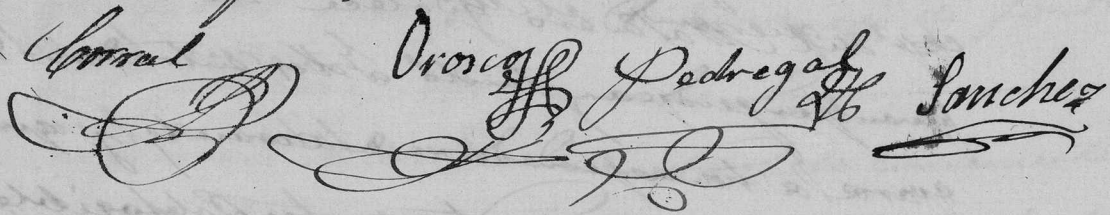 Corral Orosco Pedregal Sanchez